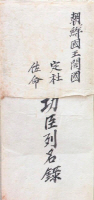 朝鮮國王開國
定社
佐命
功臣列名錄